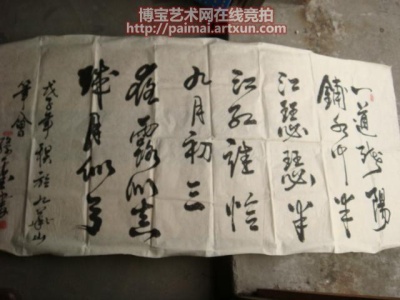 博宝艺术网在线竞拍
http://paimai.artxun.com
一道残陽
鋪水中半
江瑟瑟半
江红誰怜
九月初三
夜露似真
珠月似弓
戊子年秋於九華山
筆會